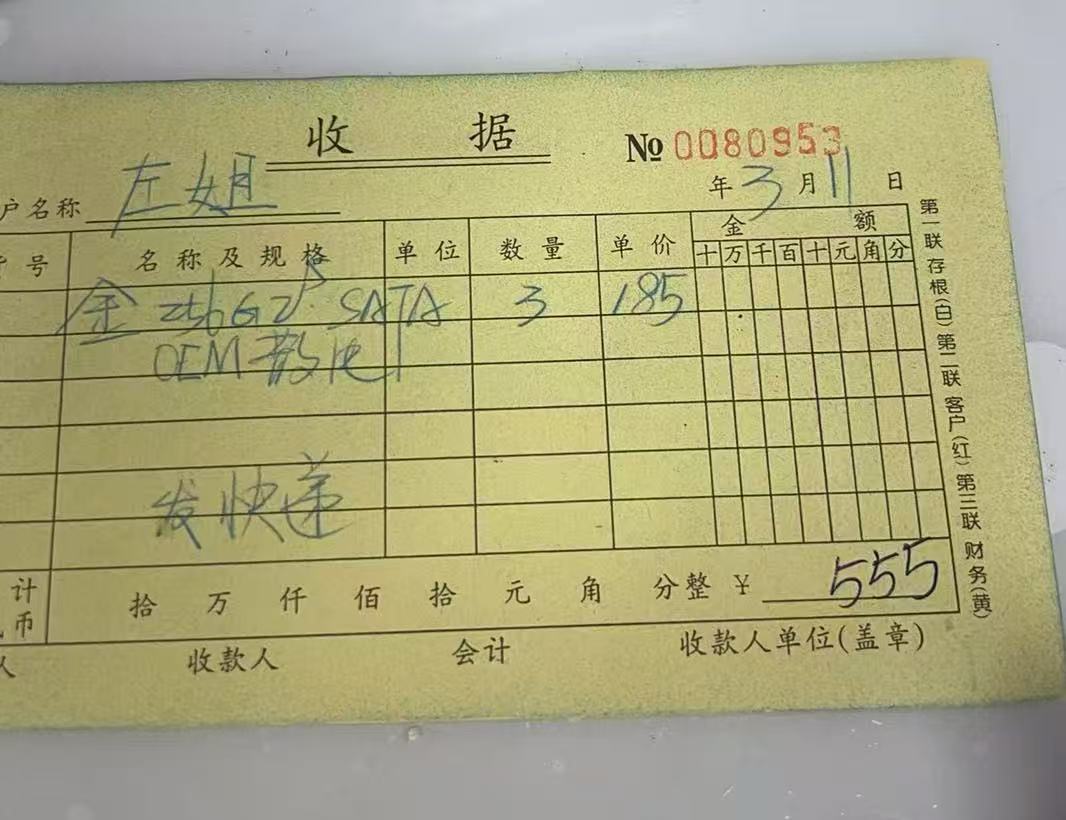 收 据
№ 0080953
户名称 左姐
年 3 月 11 日
号 名称及规格 单位 数量 单价 金额
十 万 千 百 十 元 角 分
金 256G SATA 3 185
OEM 散
发快递
计 拾 万 仟 佰 拾 元 角 分整 ¥ 555
币
人 收款人 会计 收款人单位(盖章)
第一联 存根(白) 第二联 客户(红) 第三联 财务(黄)